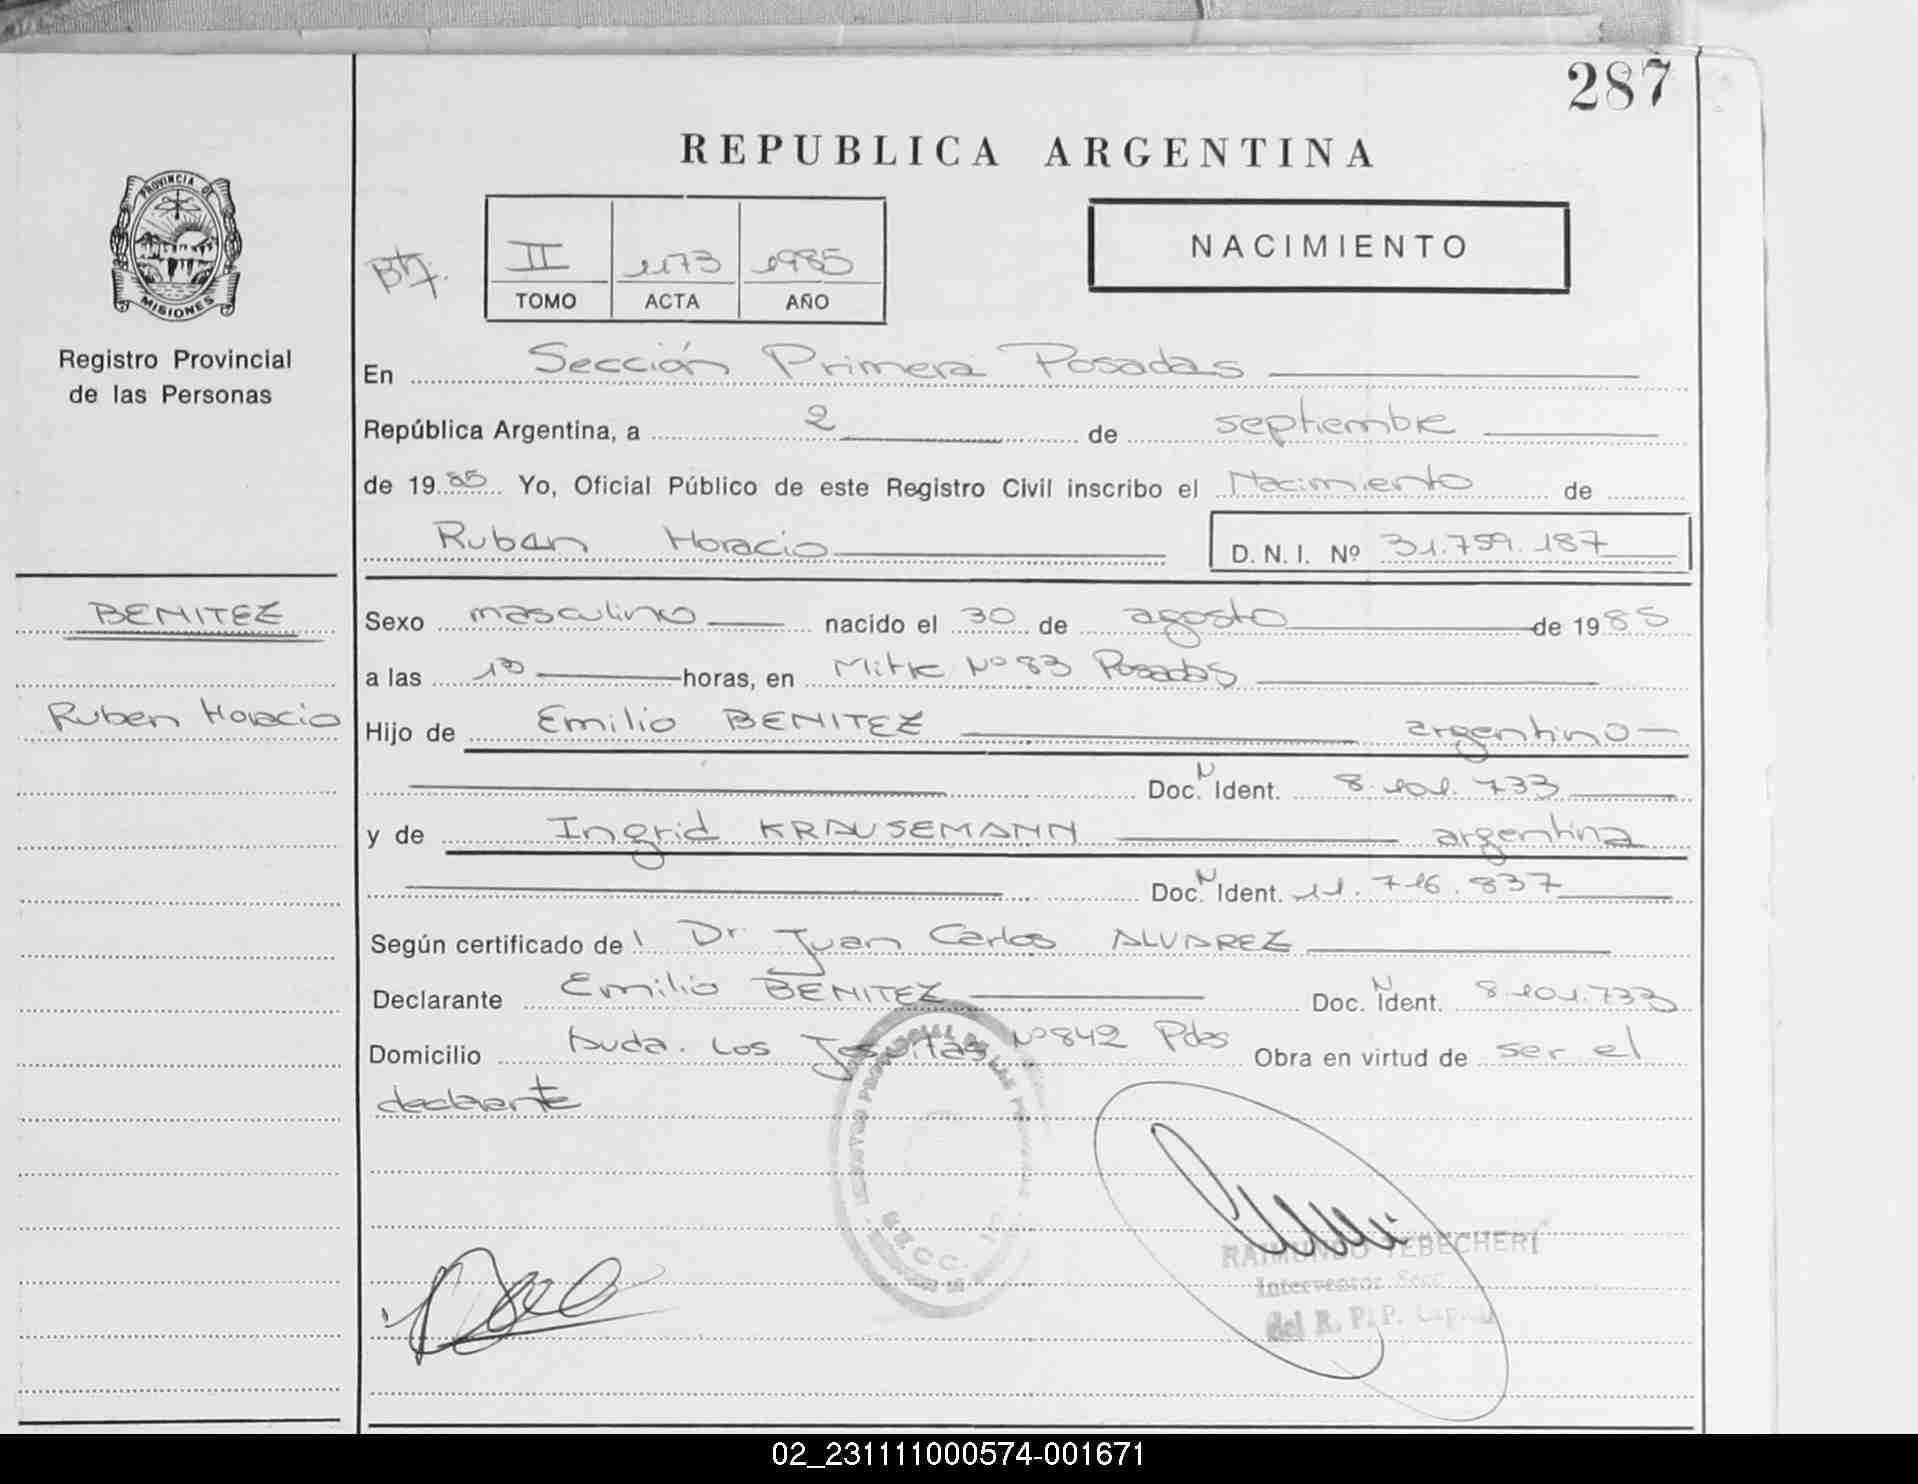 287
REPUBLICA ARGENTINA
PROVINCIA DE
MISIONES
Registro Provincial
de las Personas
II 1173 1985
TOMO ACTA AÑO
NACIMIENTO
En Sección Primera Posadas
República Argentina, a 2 de septiembre
de 1985 Yo, Oficial Público de este Registro Civil inscribo el Nacimiento de
Ruben Horacio D. N. I. Nº 31.759.187
BENITEZ
Ruben Horacio
Sexo masculino nacido el 30 de agosto de 1985
a las 13 horas, en Mitre Nº 83 Posadas
Hijo de Emilio BENITEZ argentino
Doc. N Ident. 8.101.733
y de Ingrid KRAUSEMANN argentina
Doc. N Ident. 11.716.837
Según certificado de Dr Juan Carlos ALVAREZ
Declarante Emilio BENITEZ Doc. N Ident. 8.101.733
Domicilio Avda. Los Jesuitas Nº 842 Pdas Obra en virtud de ser el
declarante
RAIMUNDO TEBECHERI
Interventor Secc
del R. P. P. Capital
02_231111000574-001671